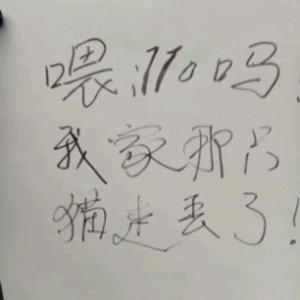 喂:110吗、
我家那只
猫走丢了!